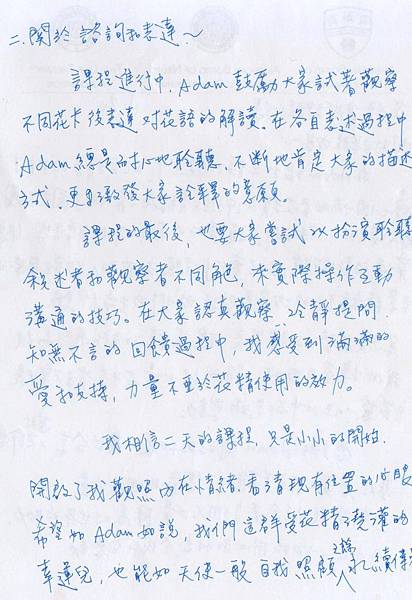 二.關於諮詢和表達~
課程進行中, Adam鼓勵大家試著觀察
不同花卡後表達對花語的解讀.在各自表述過程中
Adam總是耐心地聆聽.不斷地肯定大家的描述
方式.更激發大家詮釋的意願。
課程的最後,也要大家嘗試以扮演聆聽
敘述者和觀察者不同角色,來實際操作互動
溝通的技巧。在大家認真觀察.冷靜提問.
知無不言的回饋過程中,我感受到滿滿的
愛和支持,力量不亞於花精使用的效力。
我相信二天的課程,只是小小的開始.
開啟了我觀照內在情緒.看清現有位置的心眼
希望如Adam如說,我們這群受花精澆灌的
幸運兒,也能如天使一般自我照顧之餘永續傳